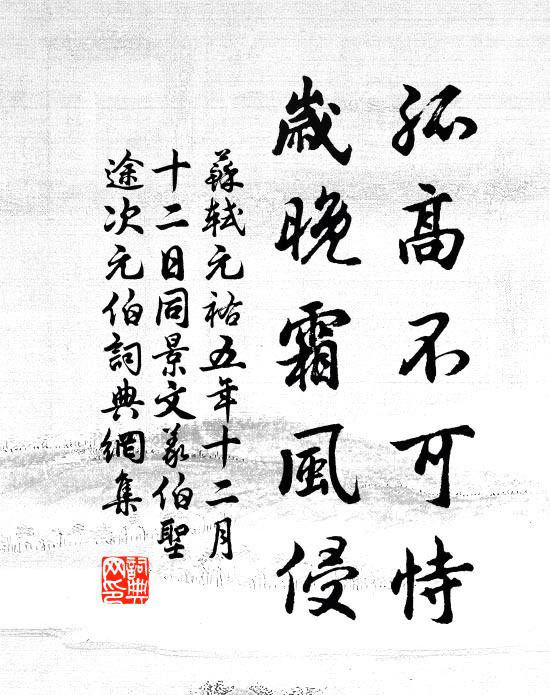 孤高不可恃
歲晚霜風侵
蘇軾元祐五年十二月
十二日同景文義伯聖
途次元伯詞典網集
詞典網印